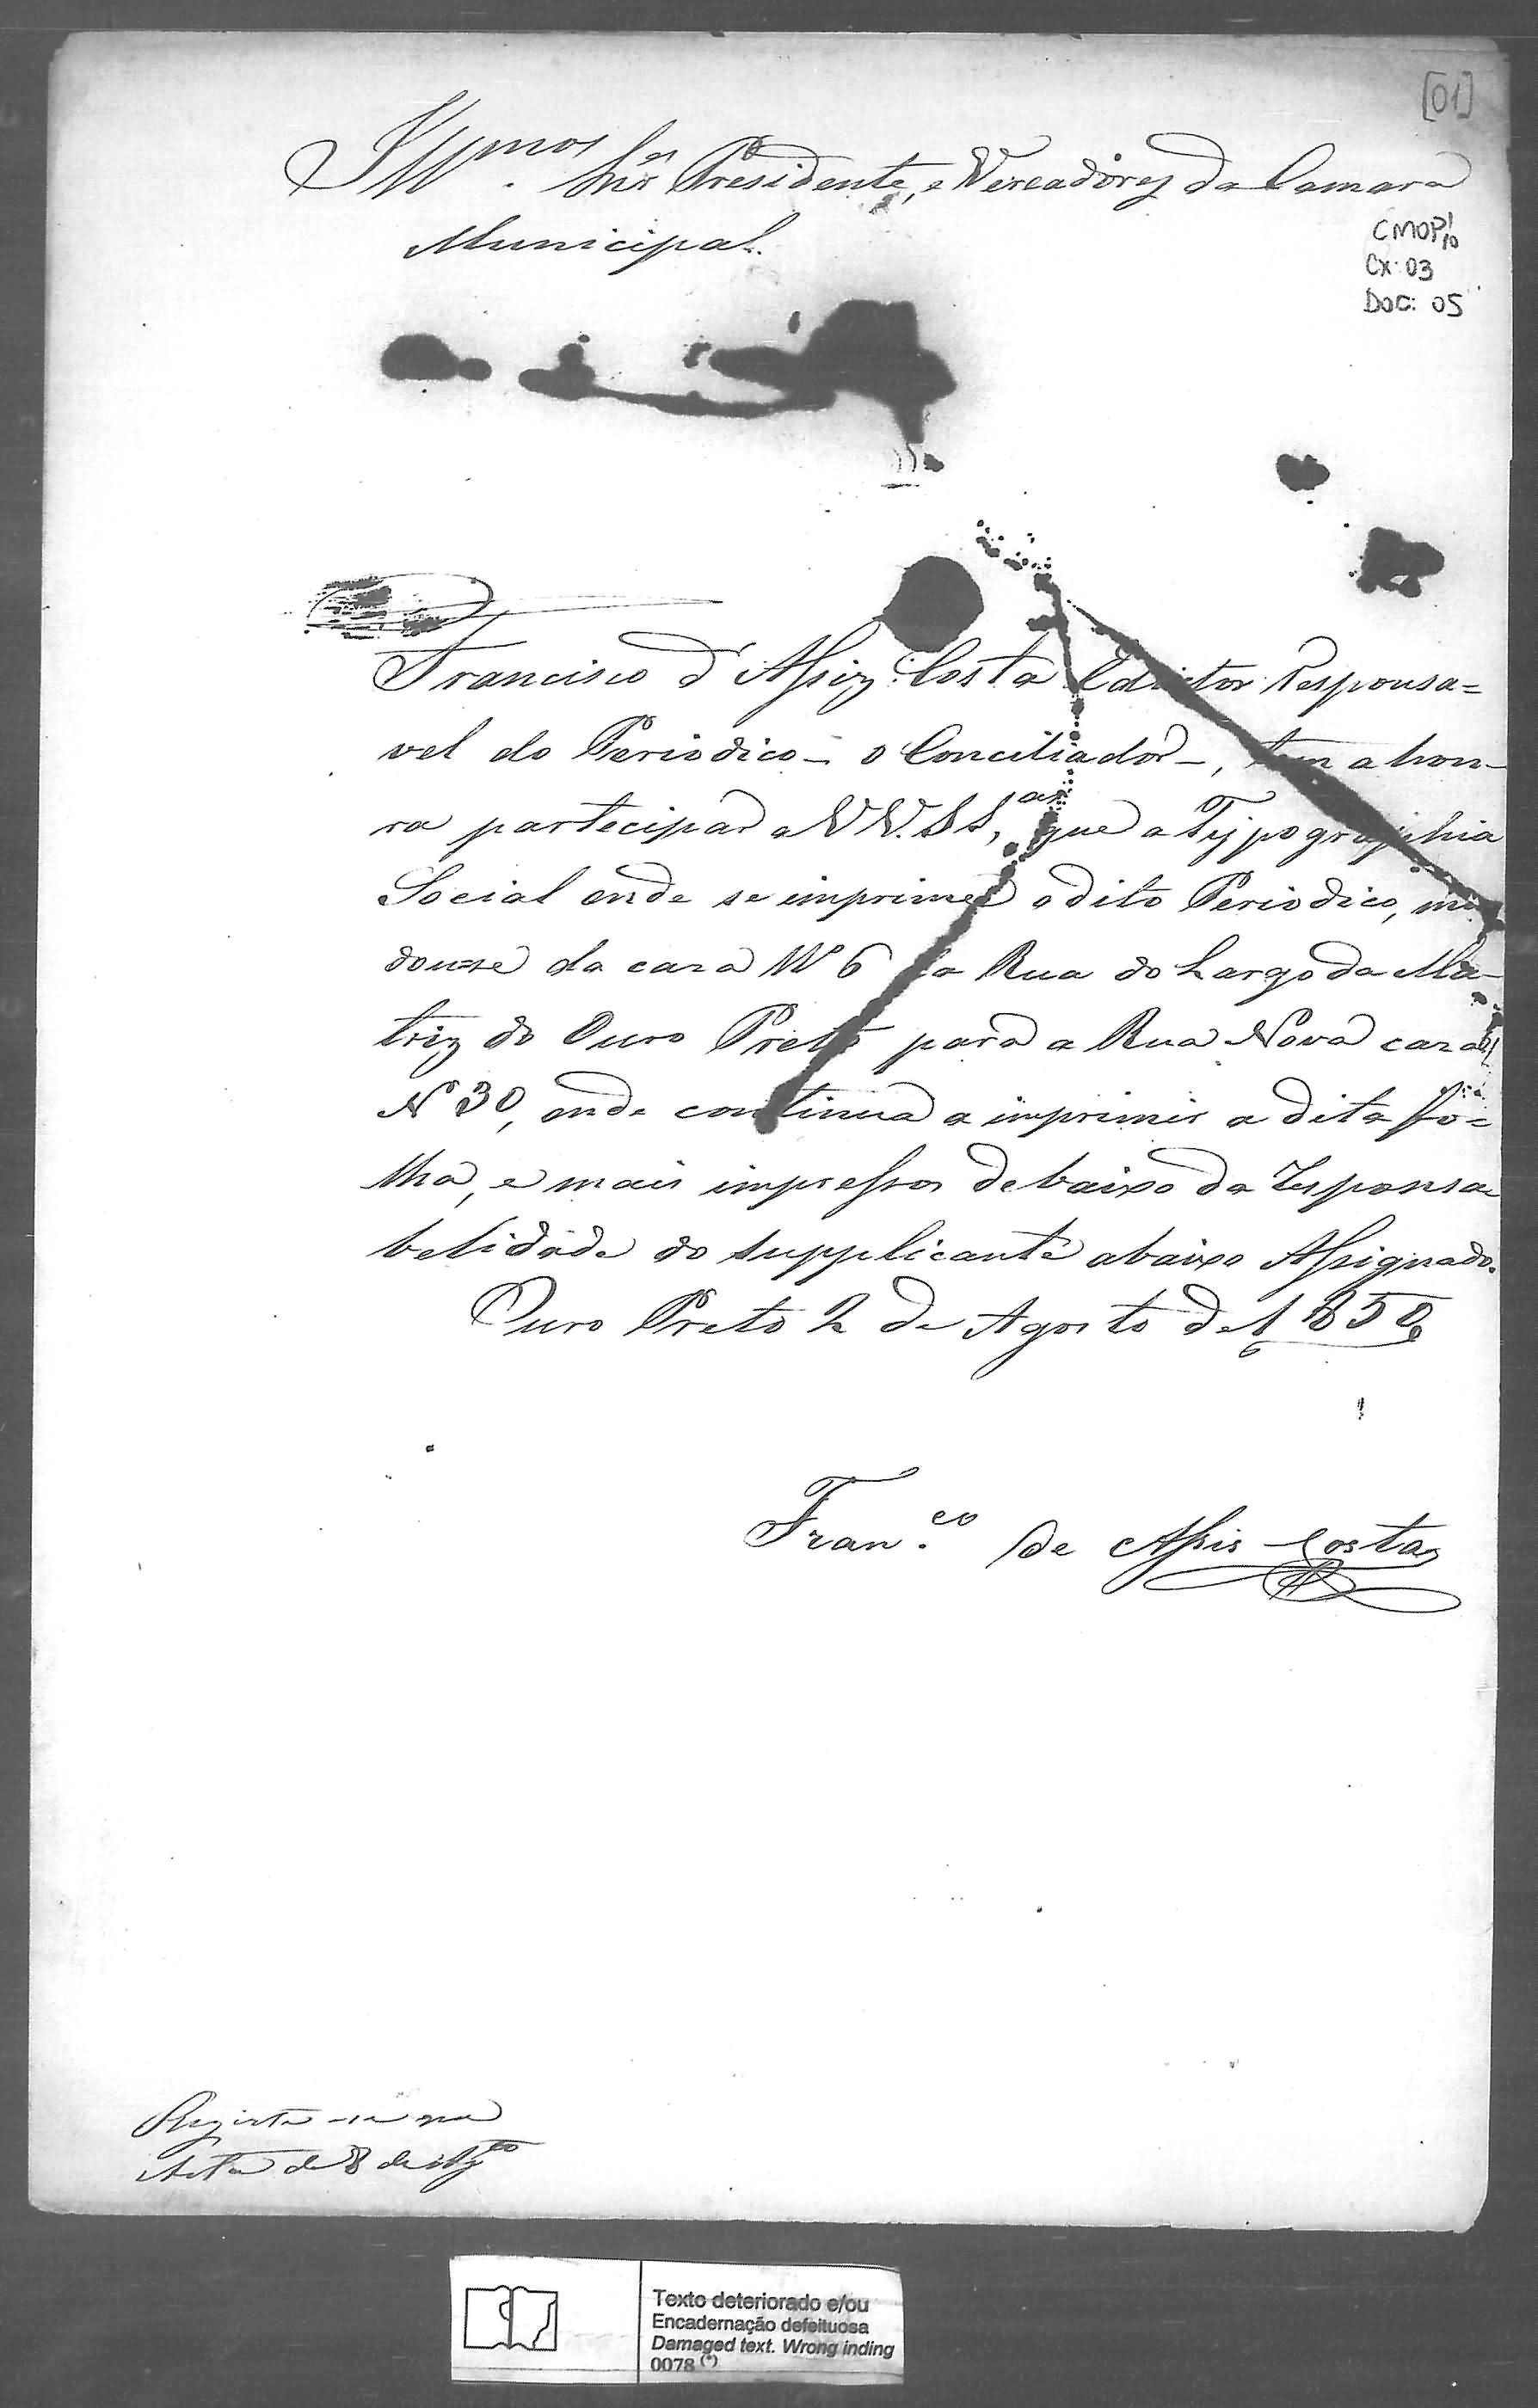 [01]
Illmos. Snres Presidente, e Vereadores da Camara
Municipal.
CMOP 1/10
Cx: 03
Doc: 05
Francisco d'Assiz Costa Edictor Responsa=
vel do Periodico - o Conciliador -, tem a hon-
ra partecipar a VV. SS.as, que a Typographia
Social onde se imprime o dito Periodico, mu
dou-se da caza Nº 6 da Rua do Largo da Ma-
triz do Ouro Preto para a Rua Nova caza
Nº 30, onde continua a imprimir a dita fo=
lha, e mais impressos debaixo da responsa
belidade do supplicante abaixo Assignado.
Ouro Preto 2 de Agosto de 1850
Fran.co de Assis Costa
Registe-se na
Acta de 8 de Agto
Texto deteriorado e/ou
Encadernação defeituosa
Damaged text. Wrong inding
0078 (*)